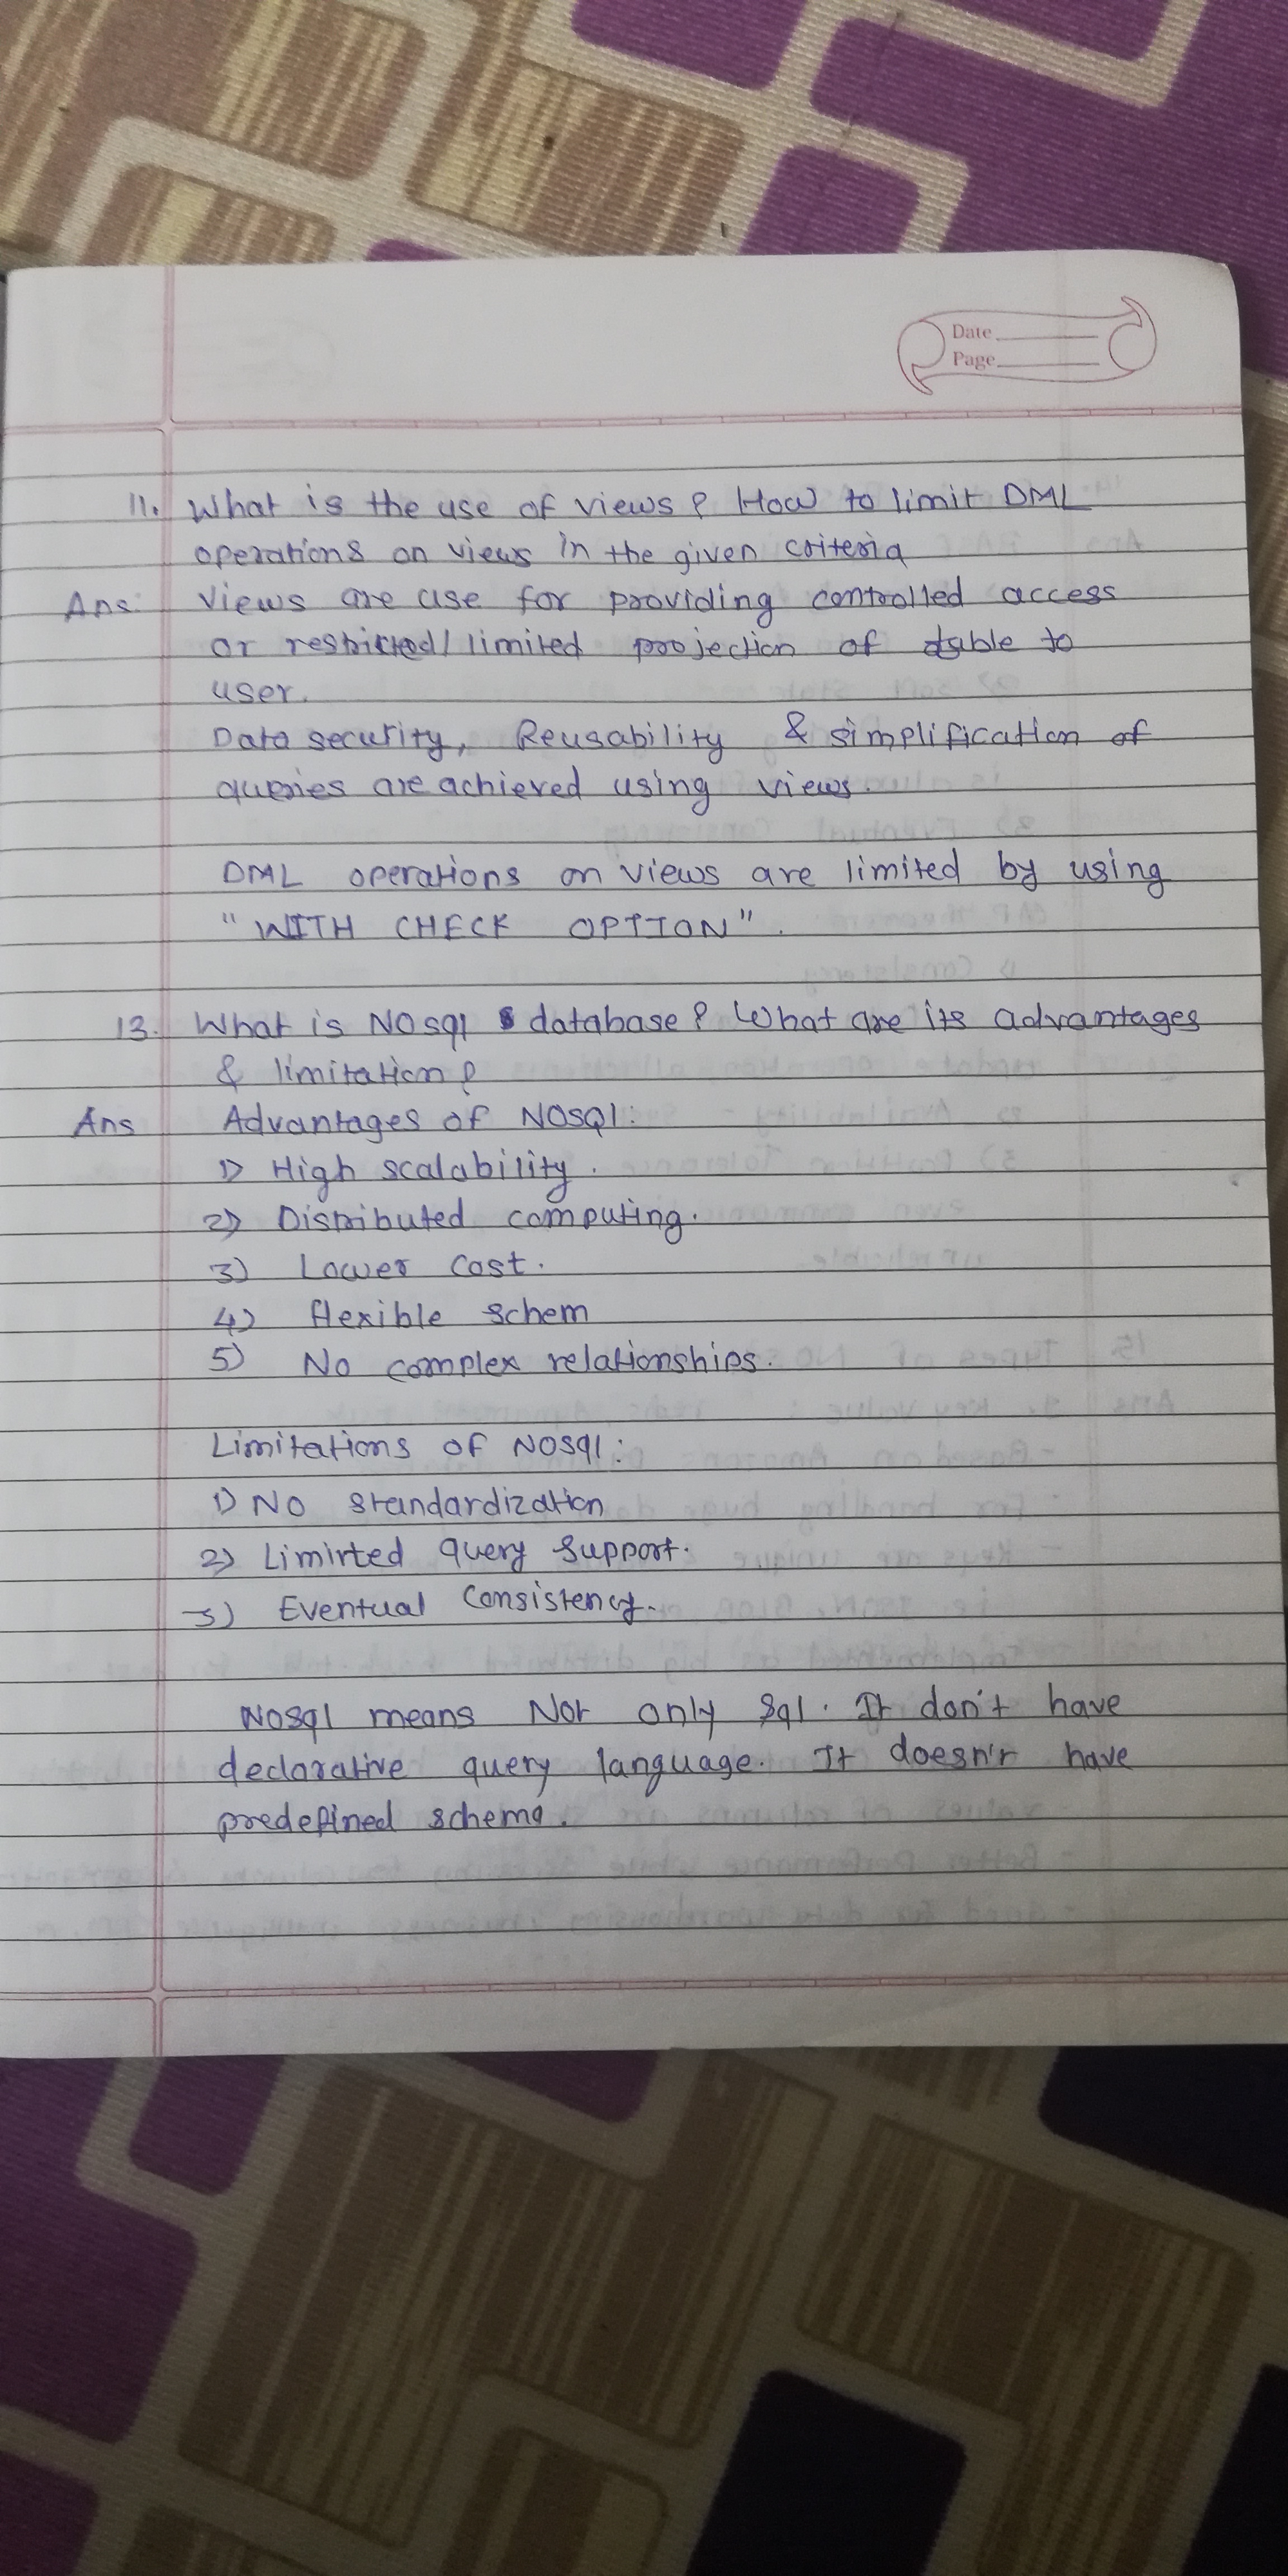 Date
Page
11. What is the use of views? How to limit DML
operations on views in the given criteria
Ans: Views are use for providing controlled access
or restricted/limited projection of table to
user.
Data security, Reusability & simplification of
queries are achieved using views.
DML operations on views are limited by using
"WITH CHECK OPTION".
13. What is NOSql database? What are its advantages
& limitation?
Ans Advantages of NOSql:
1) High scalability.
2) Distributed computing.
3) Lower cost.
4) flexible schem
5) No complex relationships.
Limitations of NOSql:
1) No standardization
2) Limirted query support.
3) Eventual Consistency.
NOSql means Not only Sql. It don't have
declarative query language. It doesn't have
predefined schema.